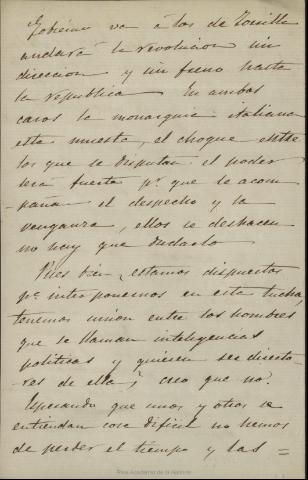 Gobierno va á los de Zorrilla
andará la revolucion sin
direccion y sin freno hasta
la republica En ambos
casos la monarquia italiana
esta muerta, el choque entre
los que se disputan el poder
sera fuerte pr. que le acom-
pañan el despecho y la
venganza, ellos se deshacen
no hay que dudarlo
Pues bien, estamos dispuestos
pa. interponernos en esta lucha,
tenemos union entre los hombres
que se llaman inteligencias
politicas y quieren ser directo-
res de ella? creo que no.
Esperando que unos y otros se
entiendan cosa dificil no hemos
de perder el tiempo y las =
Real Academia de la Historia